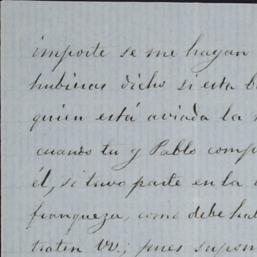 importe se me hayan
hubieras dicho si esta
quien está aviada la
cuanto tu y Pablo comp
él, si tuvo parte en la
franqueza, como debe hab
traten VV.; pues supon